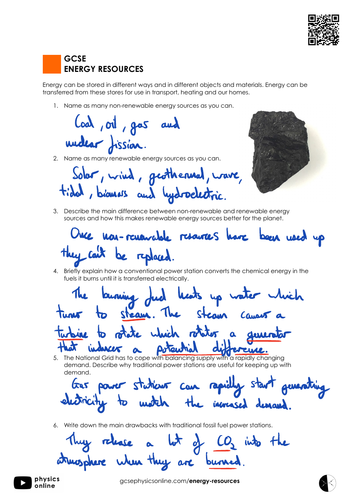 GCSE
ENERGY RESOURCES
Energy can be stored in different ways and in different objects and materials. Energy can be
transferred from these stores for use in transport, heating and our homes.
1. Name as many non-renewable energy sources as you can.
Coal, oil, gas and
nuclear fission.
2. Name as many renewable energy sources as you can.
Solar, wind, geothermal, wave,
tidal, biomass and hydroelectric.
3. Describe the main difference between non-renewable and renewable energy
sources and how this makes renewable energy sources better for the planet.
Once non-renewable resources have been used up
they can't be replaced.
4. Briefly explain how a conventional power station converts the chemical energy in the
fuels it burns until it is transferred electrically.
The burning fuel heats up water which
turns to steam. The steam causes a
turbine to rotate which rotates a generator
that induces a potential difference.
5. The National Grid has to cope with balancing supply with a rapidly changing
demand. Describe why traditional power stations are useful for keeping up with
demand.
Gas power stations can rapidly start generating
electricity to match the increased demand.
6. Write down the main drawbacks with traditional fossil fuel power stations.
They release a lot of CO2 into the
atmosphere when they are burned.
physics
online
gcsephysicsonline.com/energy-resources